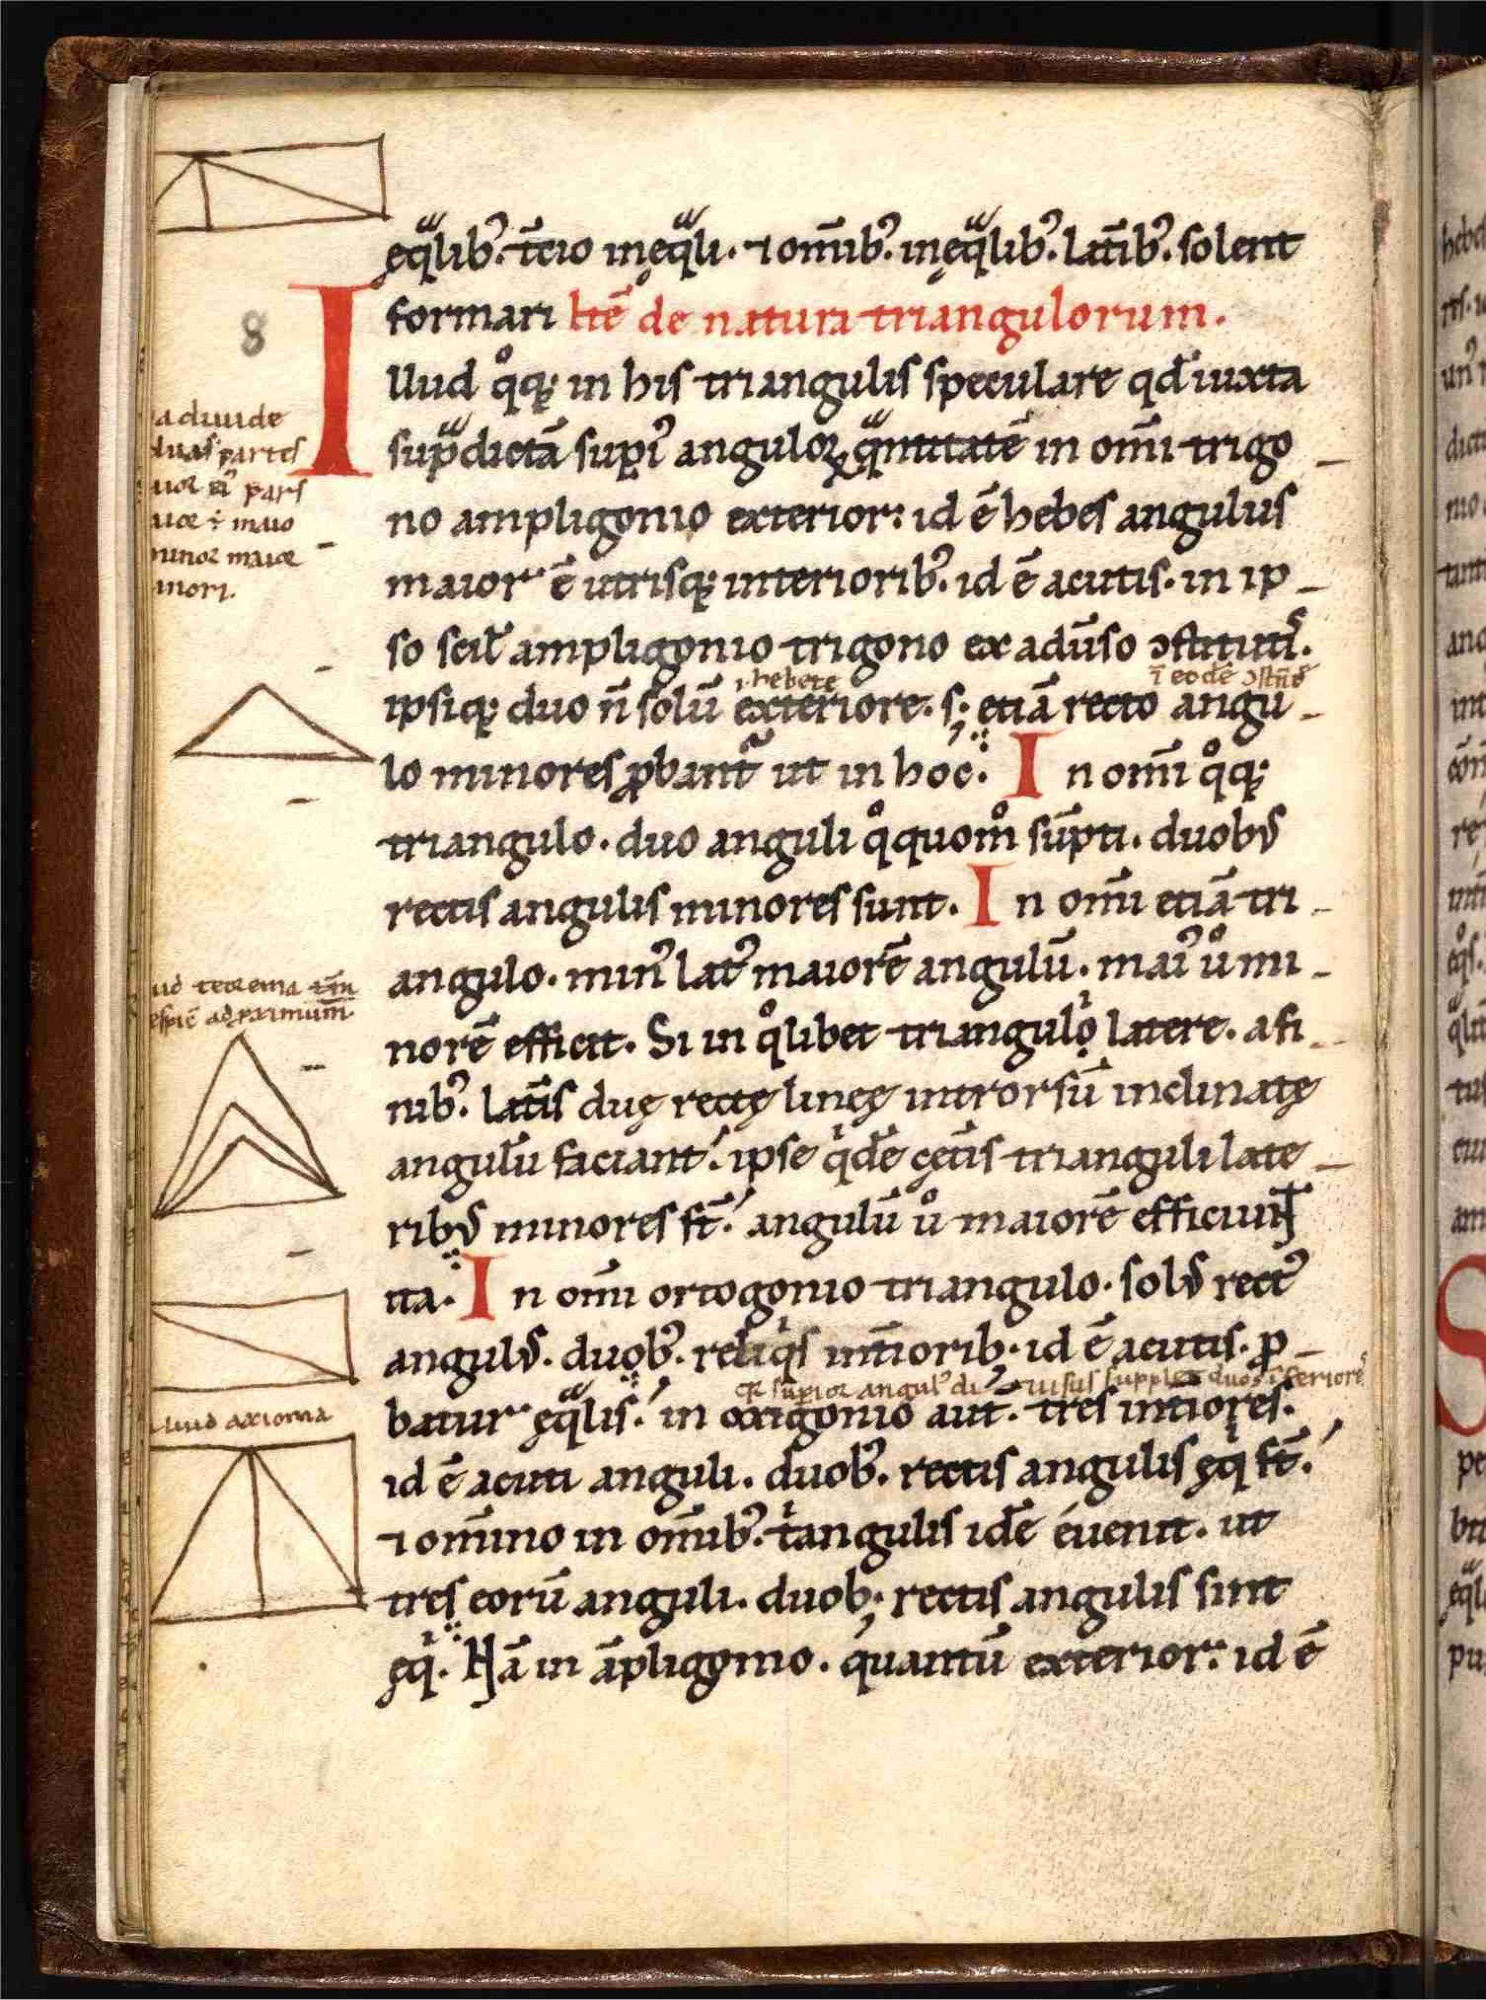 eq̄lib᷒. t̄cio ineq̄li. ⁊ om̄ib᷒. ineq̄lib᷒. lat̄ib᷒. solent
formari Itē de natura triangulorum.
8
Illud qͦq; in his triangulis speculare qd̄ iuxta
sup̄dictā supi᷒ anguloꝝ q̄ntitatē in om̄i trigo
no ampligonio exterior: id ē hebes angulus
maior ē utrisq; interiorib᷒. id ē acutis. in ip
so scil̄ ampligonio trigono ex adūso ꝯstituti᷒.
.i. hebete
ī eodē ꝯstit̄
ipsiq; duo n̄ solū exteriore. s; etiā recto angu
lo minores ꝓbant᷑ ut in hoc. In om̄i qͦq;
triangulo. duo anguli qͦquom̊ sūpti. duobꝰ
rectis angulis minores sunt. In om̄i etiā tri
angulo. min᷒ lat᷒ maiorē angulū. mai᷒ uͦ mi
norē efficit. Si in qͦlibet trianguloꝝ latere. a fi
nib᷒. lat̄is duę rectę lineę introrsū inclinatę
angulū faciant. ipse qͥdē cęt̄is trianguli late
ribꝰ minores st̄. angulū uͦ maiorē efficiunt
ita. In om̄i ortogonio triangulo. solꝰ rect᷒
angulꝰ. duob᷒. reliqͥs int̄iorib. id ē acutis. ꝓ
batur eq̄lis. in oxigonio aut. tres int̄iores.
id ē acuti anguli. duob᷒. rectis angulis ęqͥ st̄.
⁊ om̄ino in om̄ib᷒. tͥangulis idē euenit. ut
tres eorū anguli. duob; rectis angulis sint
ęqͥ. Nā in āpligonio. quantū exterior: id ē
a diuide
duas partes
pars
maio
minor maior
minori.
teorema
axioma